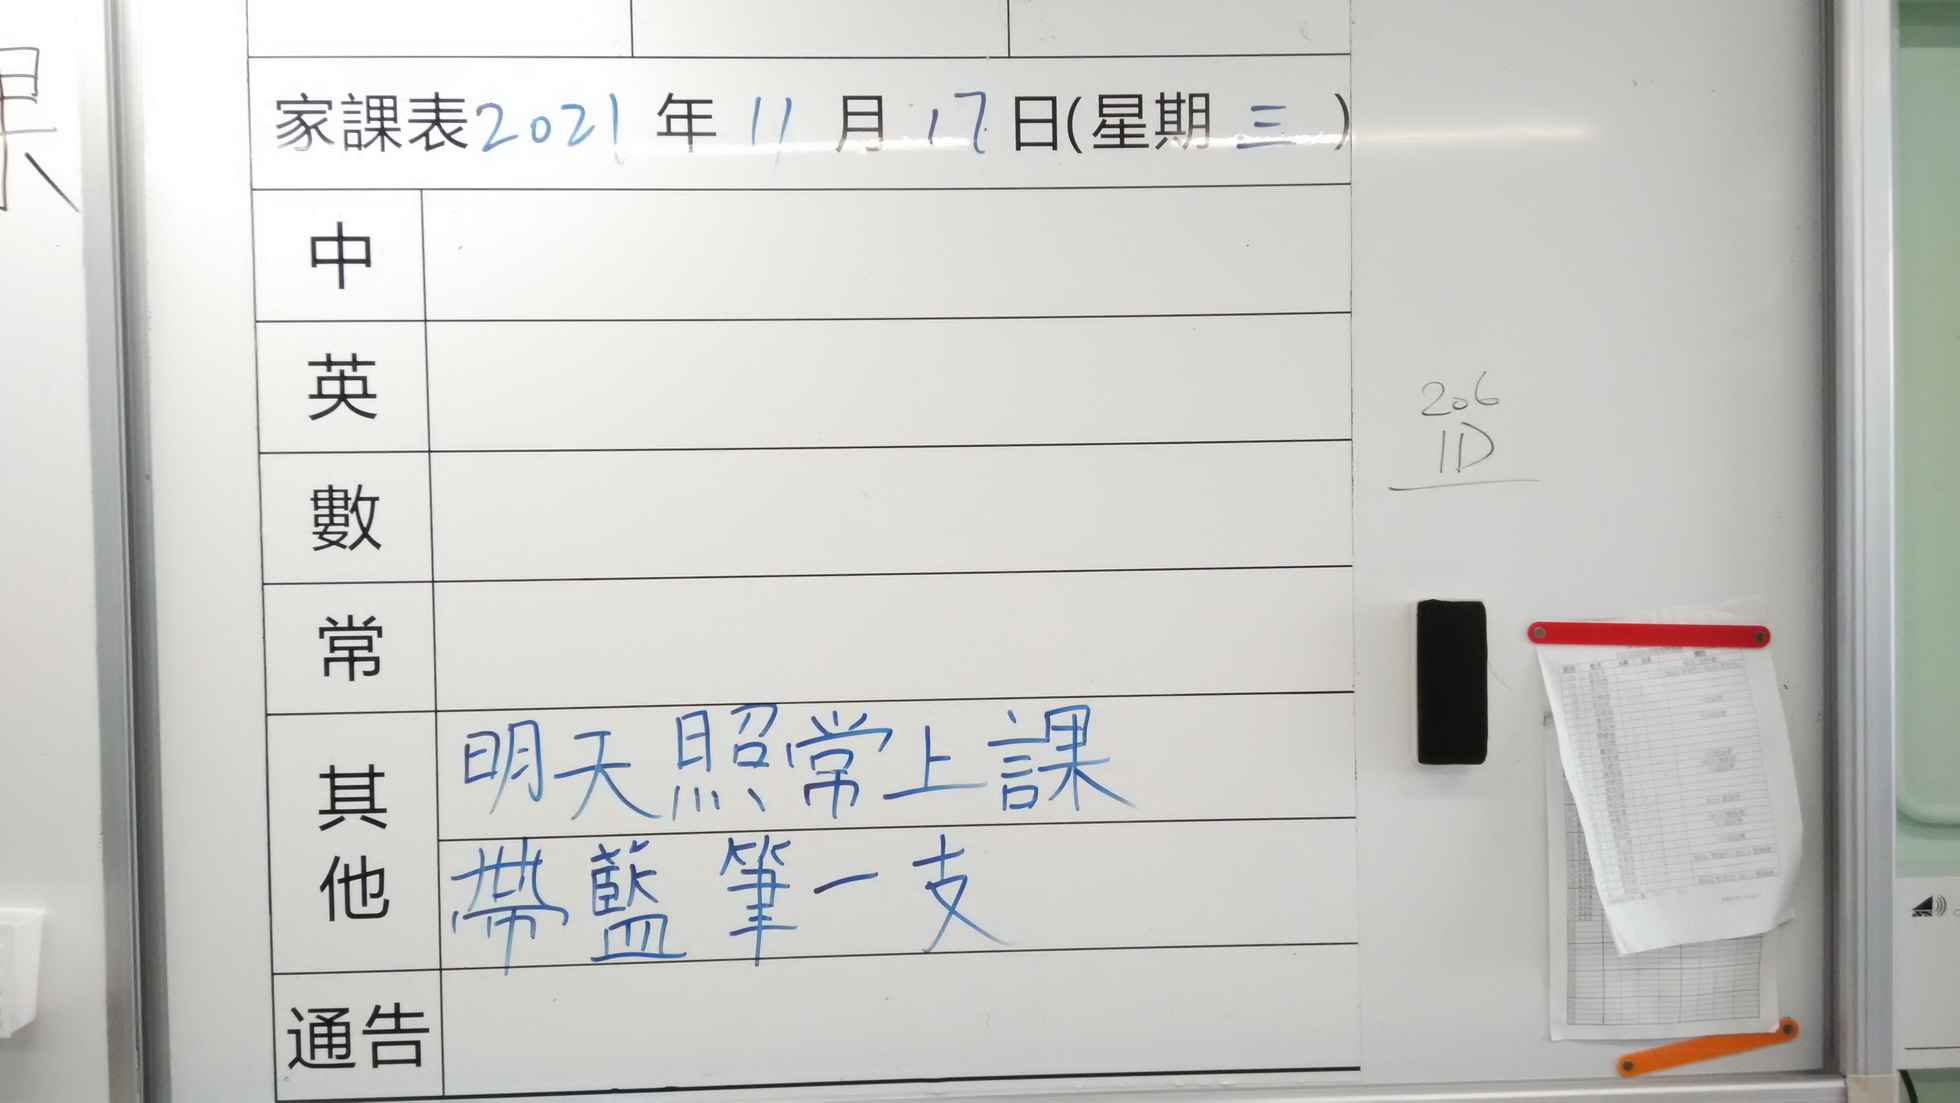 家課表2021年11月17日(星期三)
中
英
數
常
其他
明天照常上課
帶藍筆一支
通告
206
1D